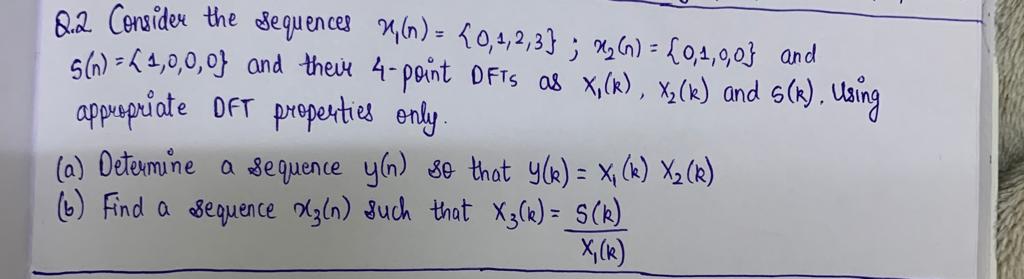 Q.2 Consider the sequences x₁(n) = {0,1,2,3} ; x₂(n) = {0,1,0,0} and
s(n) = {1,0,0,0} and their 4-point DFTs as X₁(k), X₂(k) and S(k). Using
appropriate DFT properties only.
(a) Determine a sequence y(n) so that Y(k) = X₁(k) X₂(k)
(b) Find a sequence x₃(n) such that X₃(k) = S(k)
X₁(k)